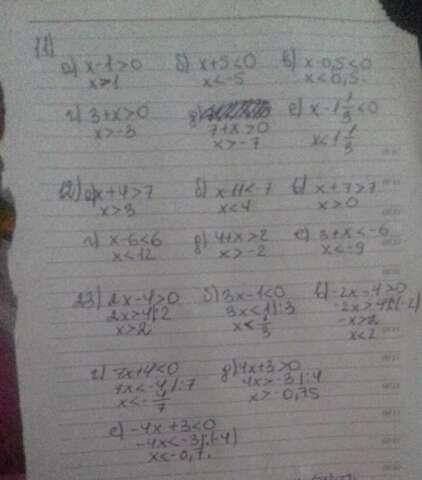 11)
а) x-1>0 б) x+5<0 в) x-0,5<0
x>1 x<-5 x<0,5
г) 3+x>0 д) 7+x>0 е) x-1 1/3<0
x>-3 x>-7 x<1 1/3
12) а) x+4>7 б) x-11<-7 в) x+7>7
x>3 x<4 x>0
г) x-6<6 д) 4+x>2 е) 3+x<-6
x<12 x>-2 x<-9
13) а) 2x-4>0 б) 3x-1<0 в) -2x-4>0
2x>4|:2 3x<1|:3
x>2 x<1/3 x<2
г) 7x+4<0 д) 4x+3>0
7x<-4|:7 4x>-3|:4
x<-4/7 x>-0,75
е) -4x+3<0
-4x<-3|:(-4)